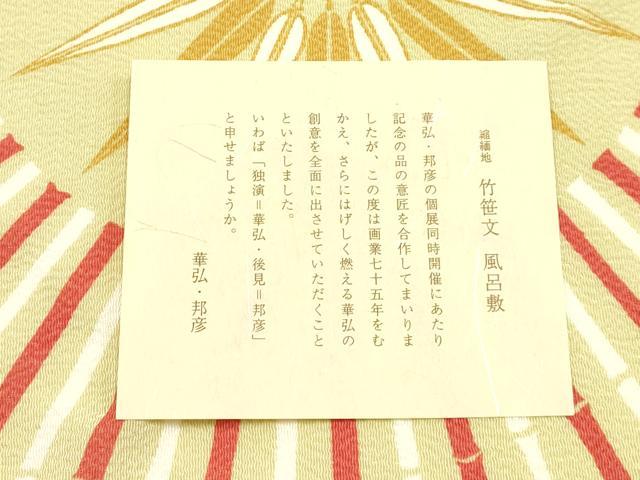 縮緬地 竹笹文 風呂敷
華弘・邦彦の個展同時開催にあたり
記念の品の意匠を合作してまいりま
したが、この度は画業七十五年をむ
かえ、さらにはげしく燃える華弘の
創意を全面に出させていただくこと
といたしました。
いわば「独演=華弘・後見=邦彦」
と申せましょうか。
華弘・邦彦